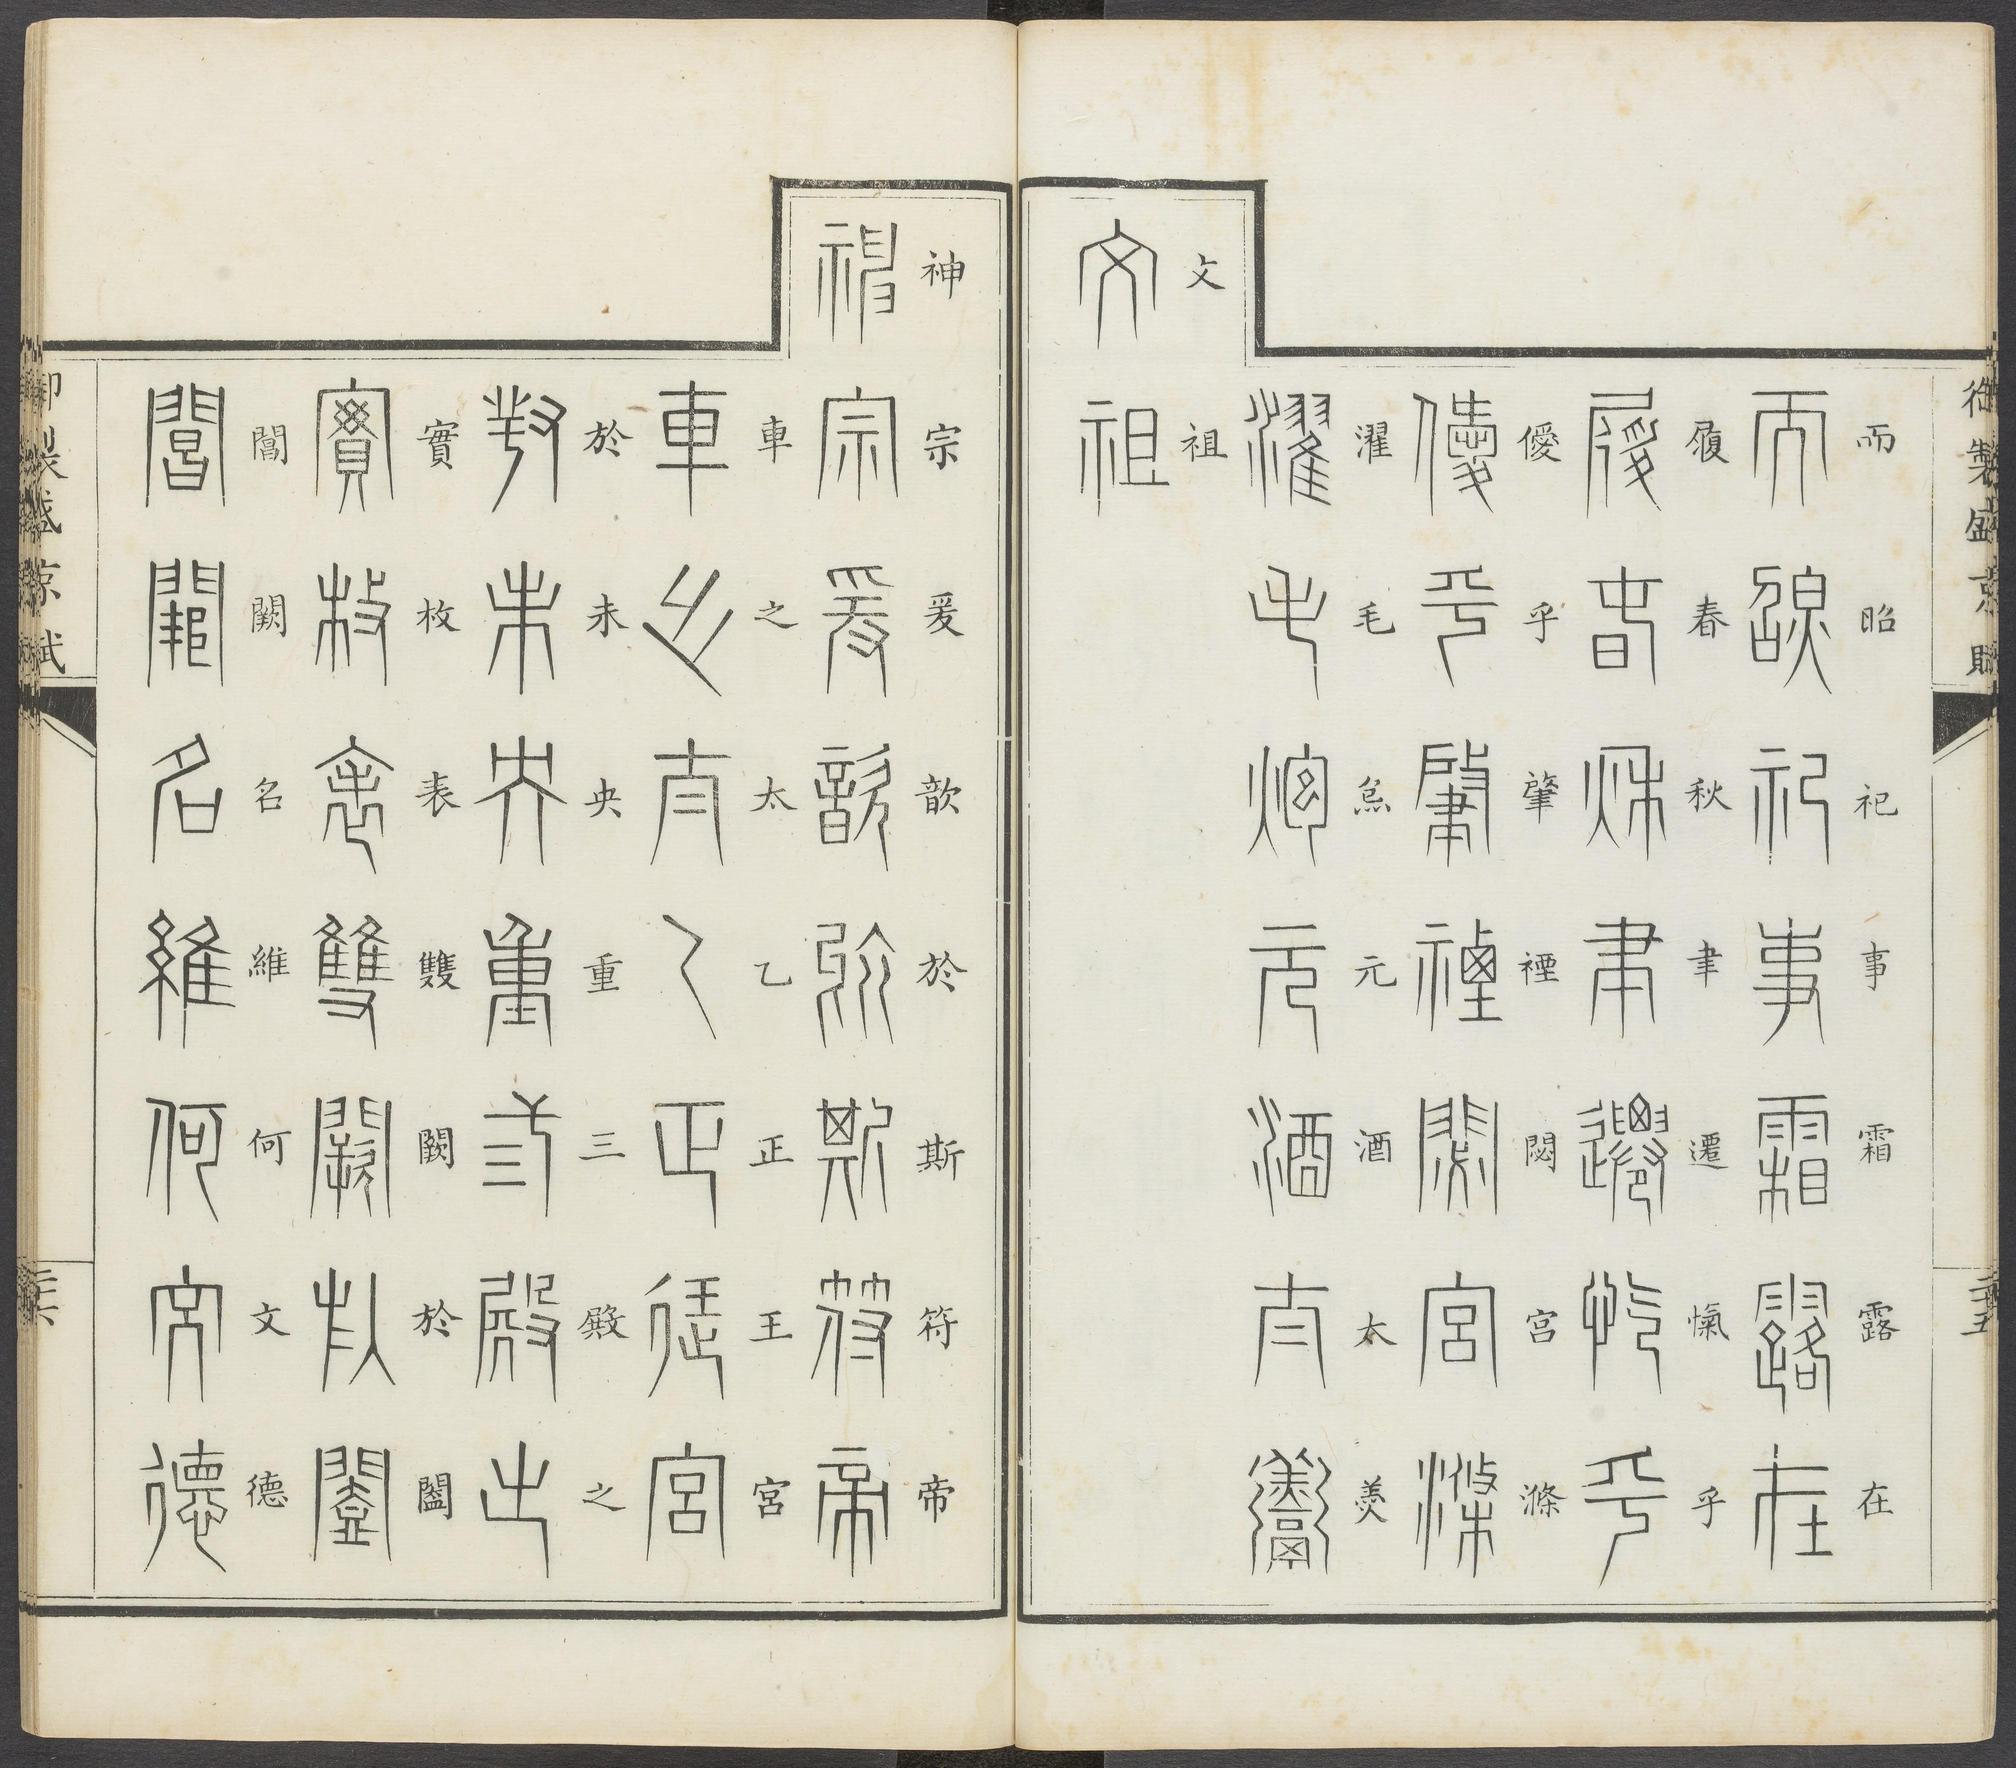 御製盛京賦
二十五
而昭祀事霜露在
履春秋聿遷愾乎
僾乎肇禋閟宮滌
濯毛炰元酒太羹
文祖
神宗爰歆於斯符帝
車之太乙正王宮
於未央重三殿之
實枚表雙闕於闔
閶闕名維何文德
御製盛京賦
二十六